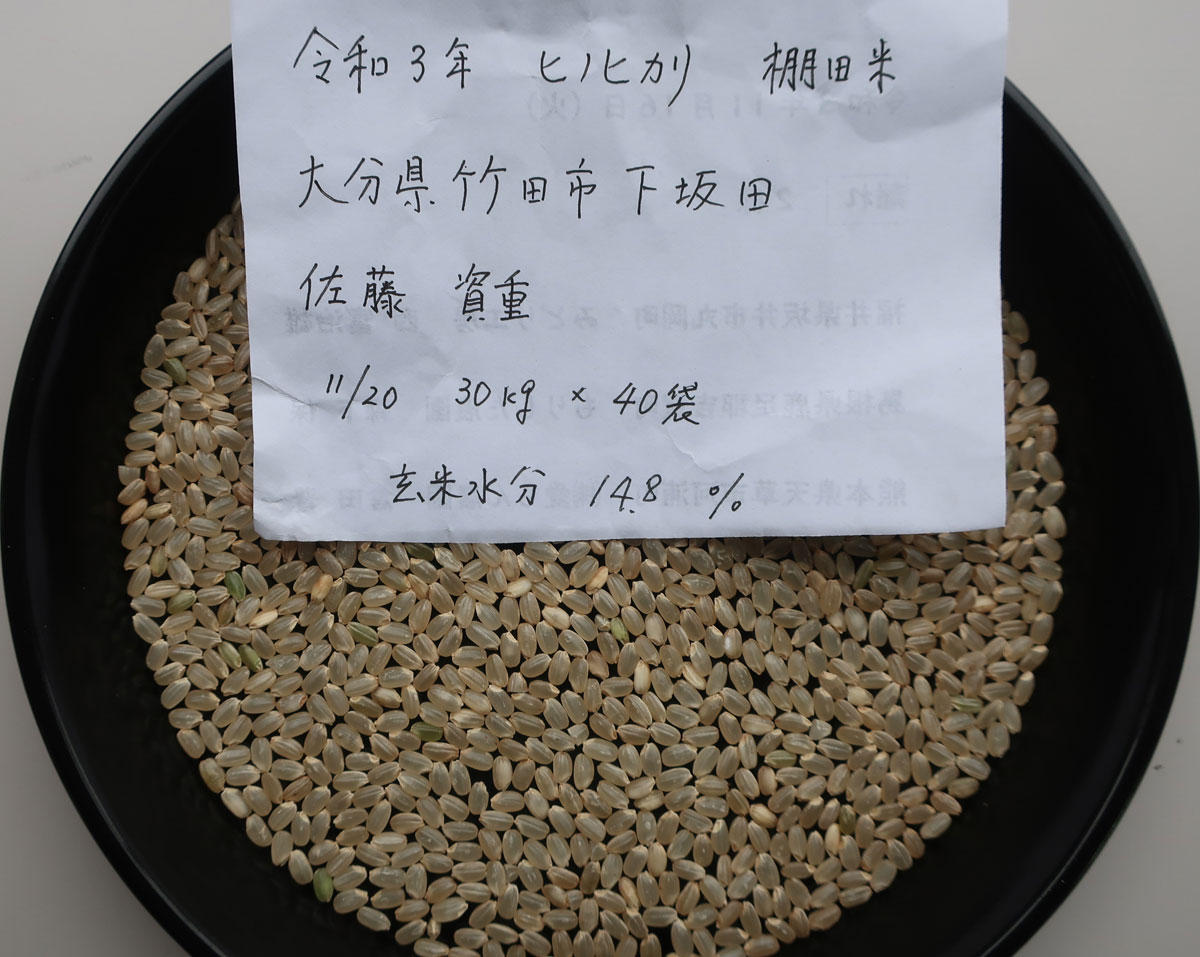 令和3年 ヒノヒカリ 棚田米
大分県竹田市下坂田
佐藤 資重
11/20 30kg × 40袋
玄米水分 14.8 %